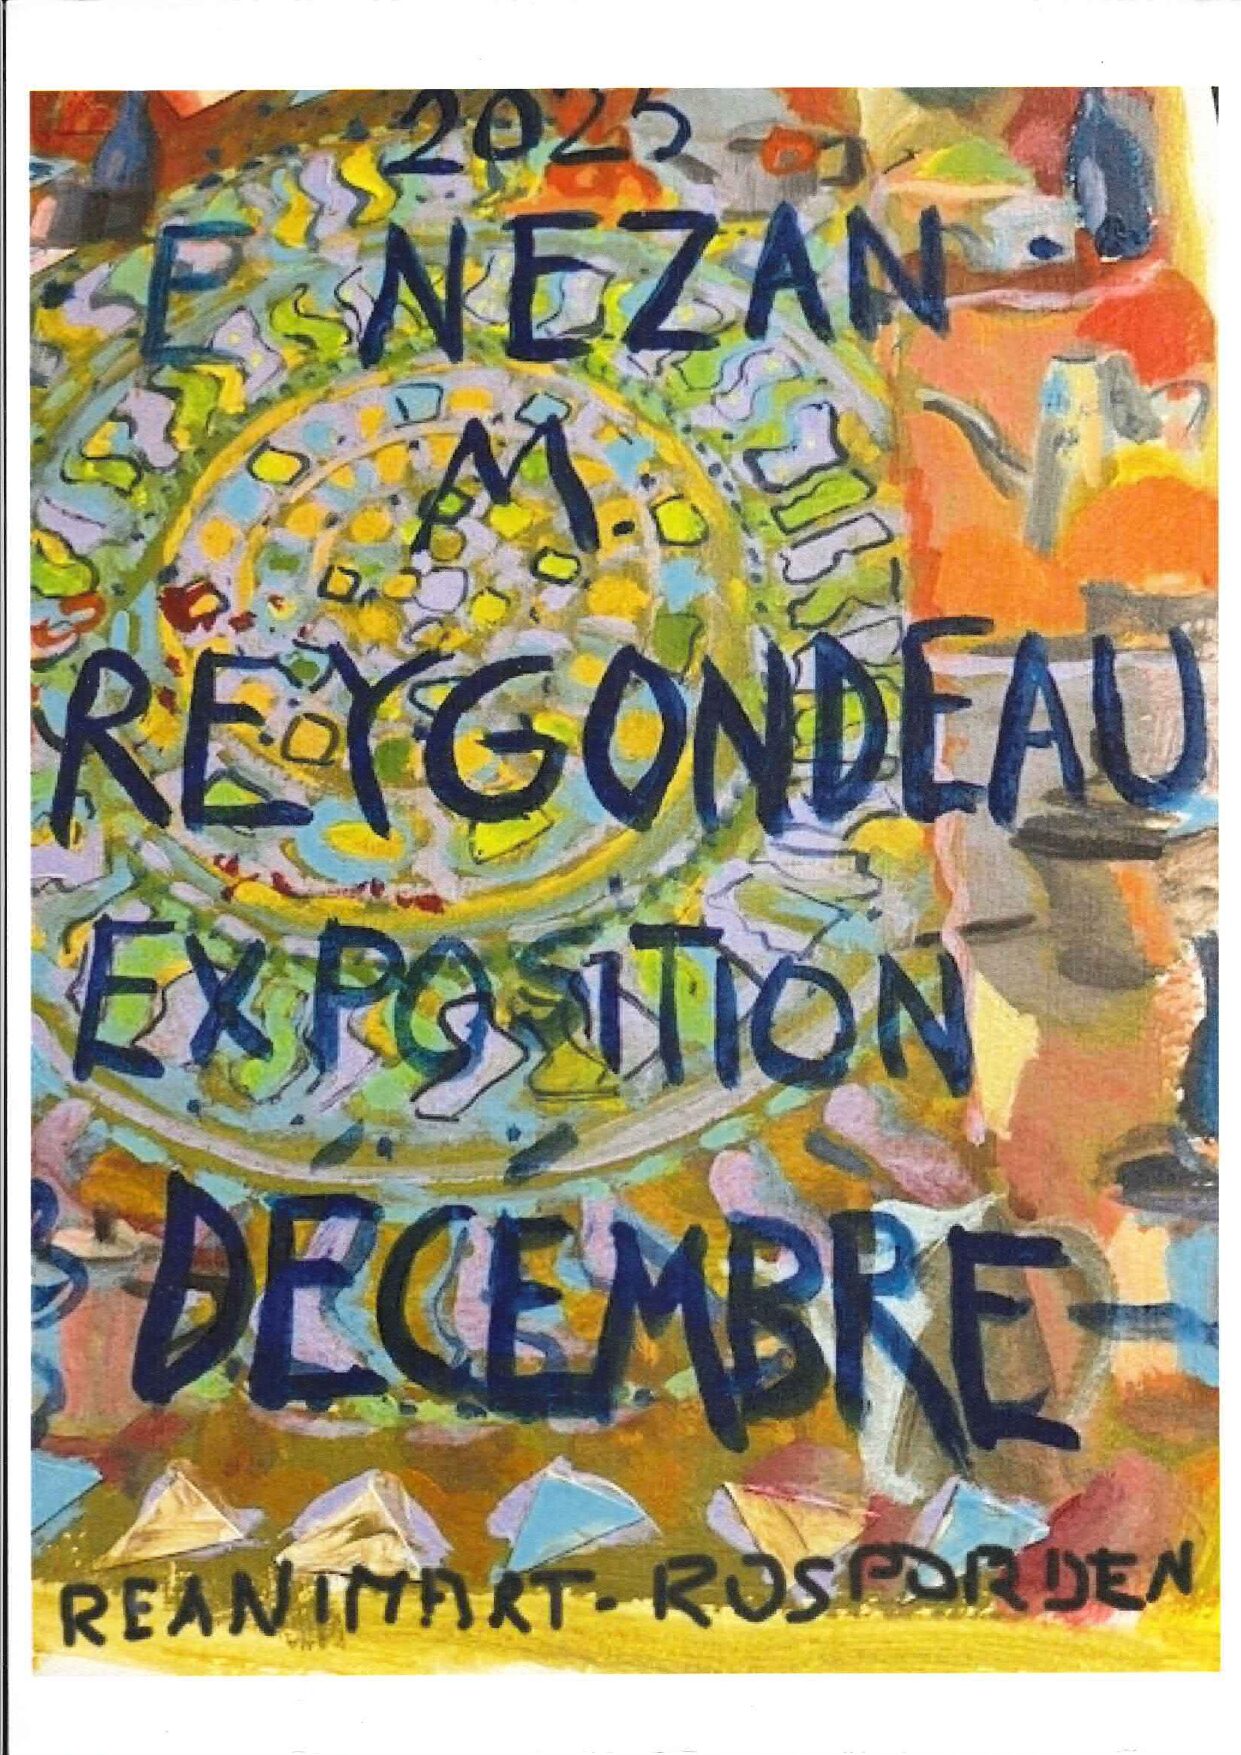 2025
E NEZAN
M.
REYGONDEAU
EXPOSITION
DÉCEMBRE
REANIMART - ROSPORDEN